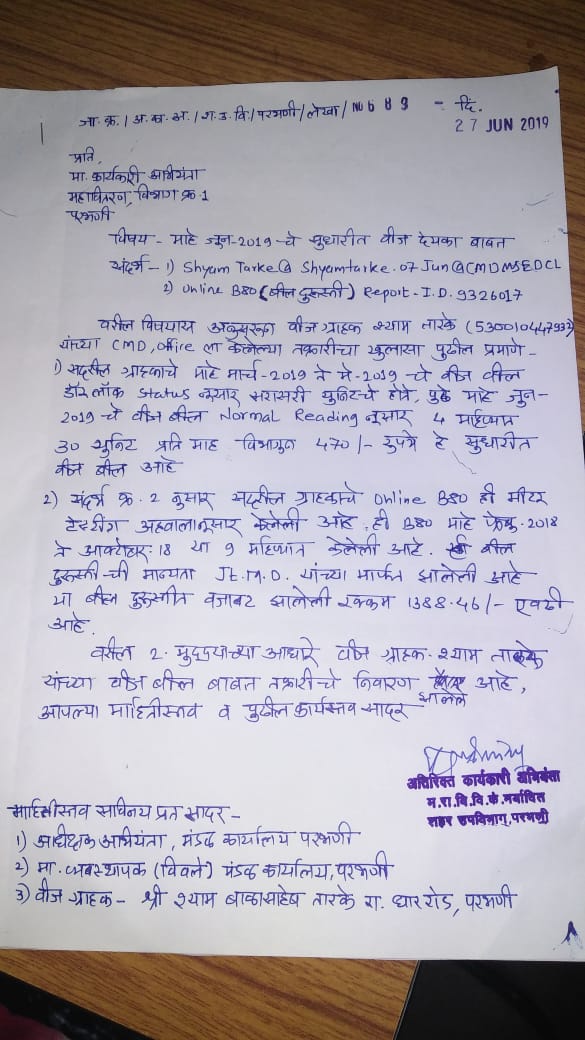 जा. क्र. / अ. का. अ. / श. उ. वि / परभणी / लेखा / No 689 - दि.
27 JUN 2019
प्रति,
मा. कार्यकारी अभियंता
महावितरण, विभाग क्र 1
परभणी
विषय - माहे जुन-2019-चे सुधारीत वीज देयका बाबत
संदर्भ - 1) Shyam Tarke@ Shyamtarke.07Jun@CMDMSEDCL
2) Online B80 (बील दुरुस्ती) Report - I.D. 9326017
वरील विषयास अनुसरून वीज ग्राहक श्याम तारके
यांच्या CMD, office ला केलेल्या तक्रारीचा खुलासा पुढील प्रमाणे -
1) सदरील ग्राहकाचे माहे मार्च-2019 ते मे-2019 चे वीज बील
डोरलॉक Status नुसार सरासरी युनिटचे होते, पुढे माहे जुन-
2019 चे वीज बील Normal Reading नुसार 4 महिण्यास
30 युनिट प्रति माह विभागुन 470/- रुपये हे सुधारीत
वीज बील आहे
2) संदर्भ क्र. 2 नुसार सदरील ग्राहकाचे Online B80 ही मीटर
टेस्टींग अहवालानुसार केलेली आहे. ही B80 माहे फेब्रु-2018
ते आक्टोहार-18 या 9 महिण्यात केलेली आहे. बील
दुरुस्ती-ची मान्यता Jt. M. D. यांच्या मार्फत झालेली आहे
या बील दुरुस्तीत वजाबट झालेली रक्कम 1388.46/- एवढी
आहे.
वरील 2. मुद्दयाच्या आधारे वीज ग्राहक. श्याम तारके
यांच्या वीज बील बाबत तक्रारीचे निवारण झालेले आहे,
आपल्या माहितीस्तव व पुढील कार्यस्तव सादर
अतिरिक्त कार्यकारी अभियंता
म.रा.वि.वि.कं.मर्यादित
शहर उपविभाग, परभणी
माहितीस्तव सविनय प्रत सादर -
1) अधीक्षक अभियंता, मंडळ कार्यालय परभणी
2) मा. व्यवस्थापक (वि व ले) मंडळ कार्यालय, परभणी
3) वीज ग्राहक - श्री श्याम बाळासाहेब तारके रा. धार रोड, परभणी